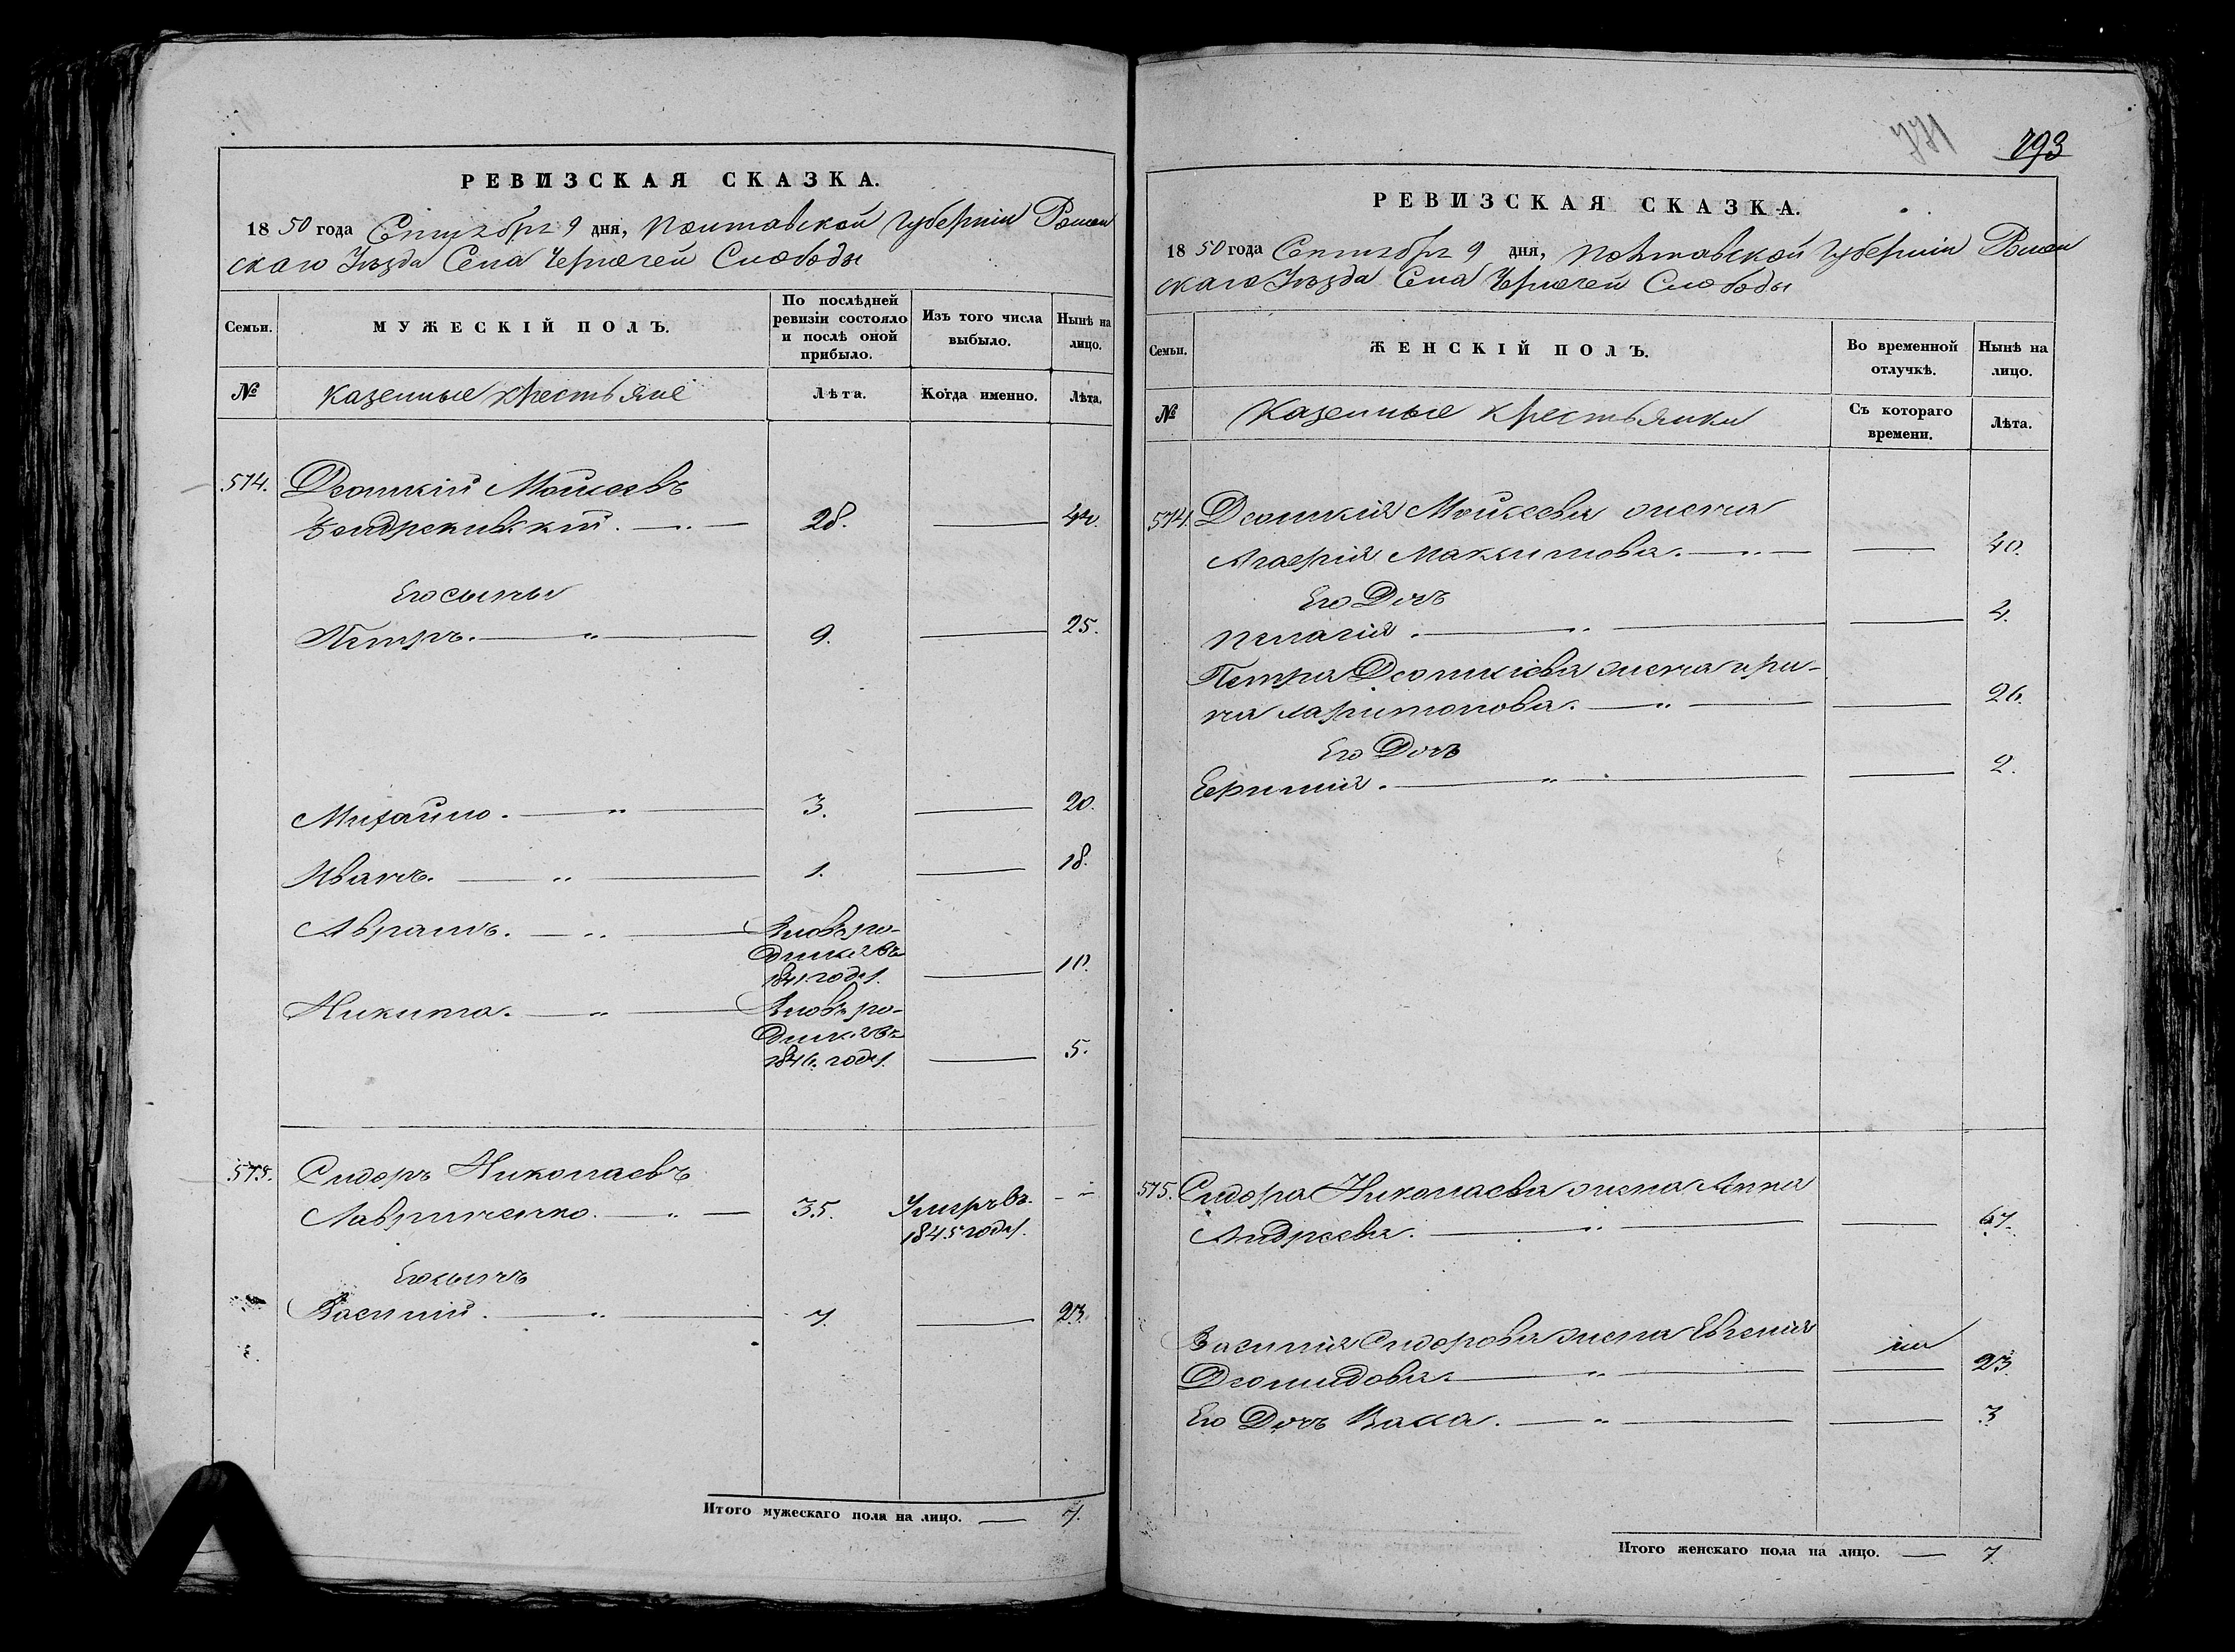 РЕВИЗСКАЯ СКАЗКА.
18 50 года Сентября 9 дня, Полтавской Губернии Ромен
скаго Уезда Села Чернечей Слободы
Семьи.
МУЖЕСКІЙ ПОЛЪ.
По послѣдней ревизіи состояло и послѣ оной прибыло.
Изъ того числа выбыло.
Нынѣ на лицо.
№
Казенные крестьяне
Лѣта.
Когда именно.
Лѣта.
514. Деомкій Моисеевъ
28. 44.
Его сыны
Петръ. 9. 25.
Михайло. 3. 20.
Иванъ. 1. 18.
Аврамъ. Вновь ро-
дился въ
1841 году. 10.
Никита. Вновь ро-
дился въ
1846. году. 5.
515. Сидоръ Николаевъ
Лавриненко. 35. Умръ въ
1845 году.
Его сынъ
Василий. 7. 23.
Итого мужескаго пола на лицо. 7.
793
РЕВИЗСКАЯ СКАЗКА.
18 50 года Сентября 9 дня, Полтавской Губернии Ромен
скаго Уезда Села Чернечей Слободы
Семьи.
ЖЕНСКІЙ ПОЛЪ.
Во временной отлучкѣ.
Нынѣ на лицо.
№
Казенные крестьянки
Съ котораго времени.
Лѣта.
514. Деомкія Моисеева жена
Агафія Максимова. 40.
Его Дочь
Пелагія. 4.
Петра Деомкіева жена Ири-
на Харитонова. 26.
Его Дочь
2.
515. Сидора Николаева жена Анна
Андреева. 67.
Василія Сидорова жена Евгенія
Деомидова. 23.
Его Дочь Васса. 3
Итого женскаго пола на лицо. 7.